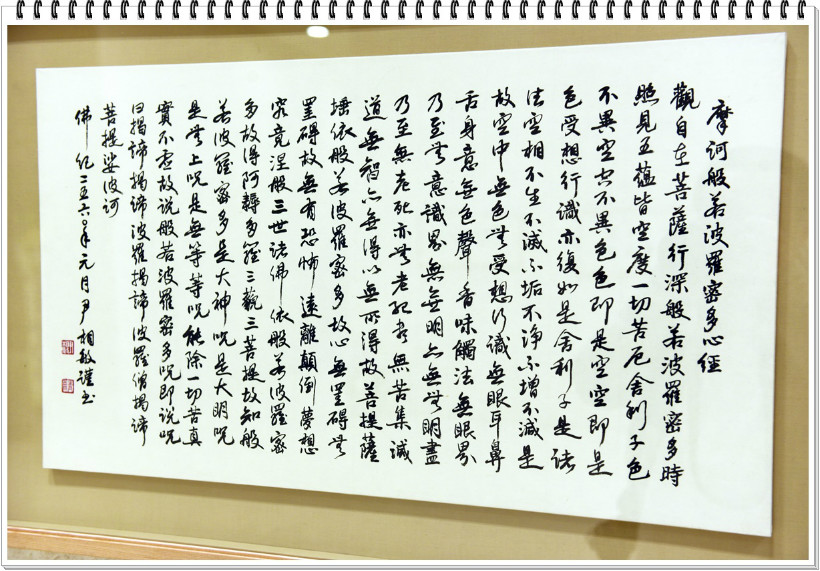 摩訶般若波羅蜜多心經
觀自在菩薩行深般若波羅蜜多時
照見五蘊皆空度一切苦厄舍利子色
不異空空不異色色即是空空即是
色受想行識亦復如是舍利子是諸
法空相不生不滅不垢不淨不增不減是
故空中無色無受想行識無眼耳鼻
舌身意無色聲香味觸法無眼界
乃至無意識界無無明亦無無明盡
乃至無老死亦無老死盡無苦集滅
道無智亦無得以無所得故菩提薩
埵依般若波羅蜜多故心無罣碍無
罣碍故無有恐怖遠離顛倒夢想
究竟涅般三世諸佛依般若波羅蜜
多故得阿耨多羅三藐三菩提故知般
若波羅蜜多是大神呪是大明呪
是無上呪是無等等呪能除一切苦真
實不虛故說般若波羅蜜多呪即說呪
曰揭諦揭諦波羅揭諦波羅僧揭諦
菩提娑波訶
佛紀二五六〇年元月尹相敏謹書